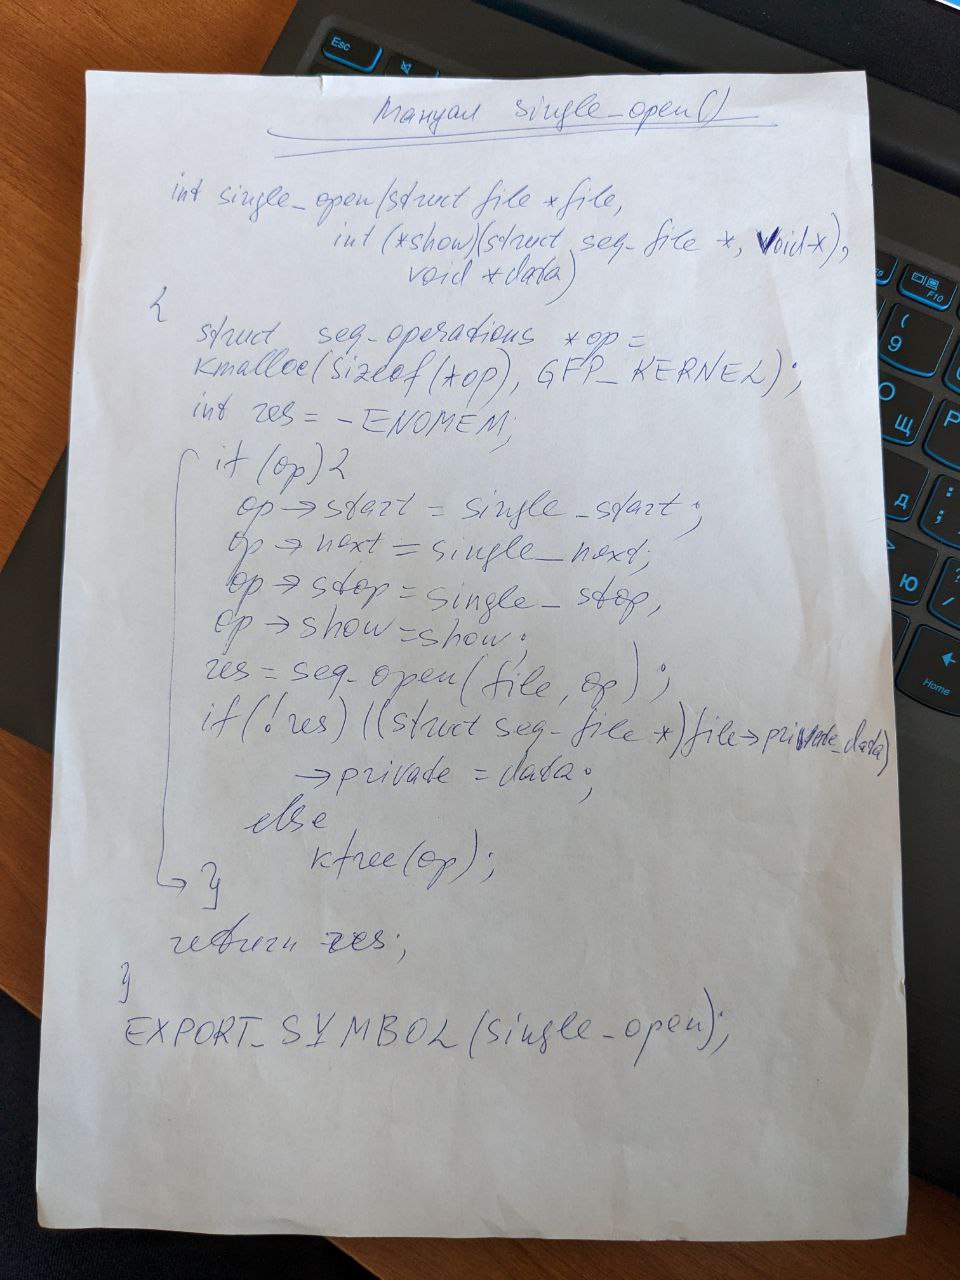 Мануал single_open()
int single_open(struct file *file,
int (*show)(struct seq_file *, void *),
void *data)
{
struct seq_operations *op =
kmalloc(sizeof(*op), GFP_KERNEL);
int res = -ENOMEM;
if (op) {
op->start = single_start;
op->next = single_next;
op->stop = single_stop;
op->show = show;
res = seq_open(file, op);
if (!res) ((struct seq_file *)file->private_data)
->private = data;
else
kfree(op);
}
return res;
}
EXPORT_SYMBOL(single_open);
Esc
F9
F10
(
9
О
Щ
Р
Д
;
Ю
?
/
Home